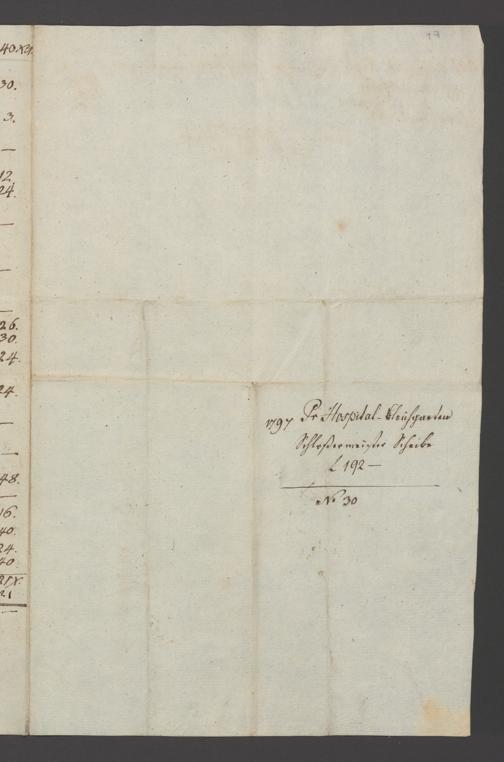 40 xr.
30.
3.
—
12
24.
—
—
—
26.
30.
24.
24.
—
—
48.
—
16.
40.
24.
40.
21 x.
21
—
19
1797 Pr Hospital-
Schloßermeister Scheibe
£ 192 —
No 30